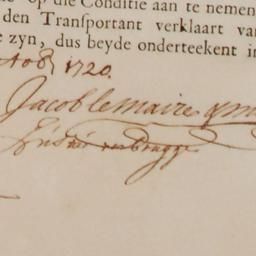 op die Conditie aan te nemen
den Tranſportant verklaart va
zyn, dus beyde onderteekent i
1720.
Jacob lemaire